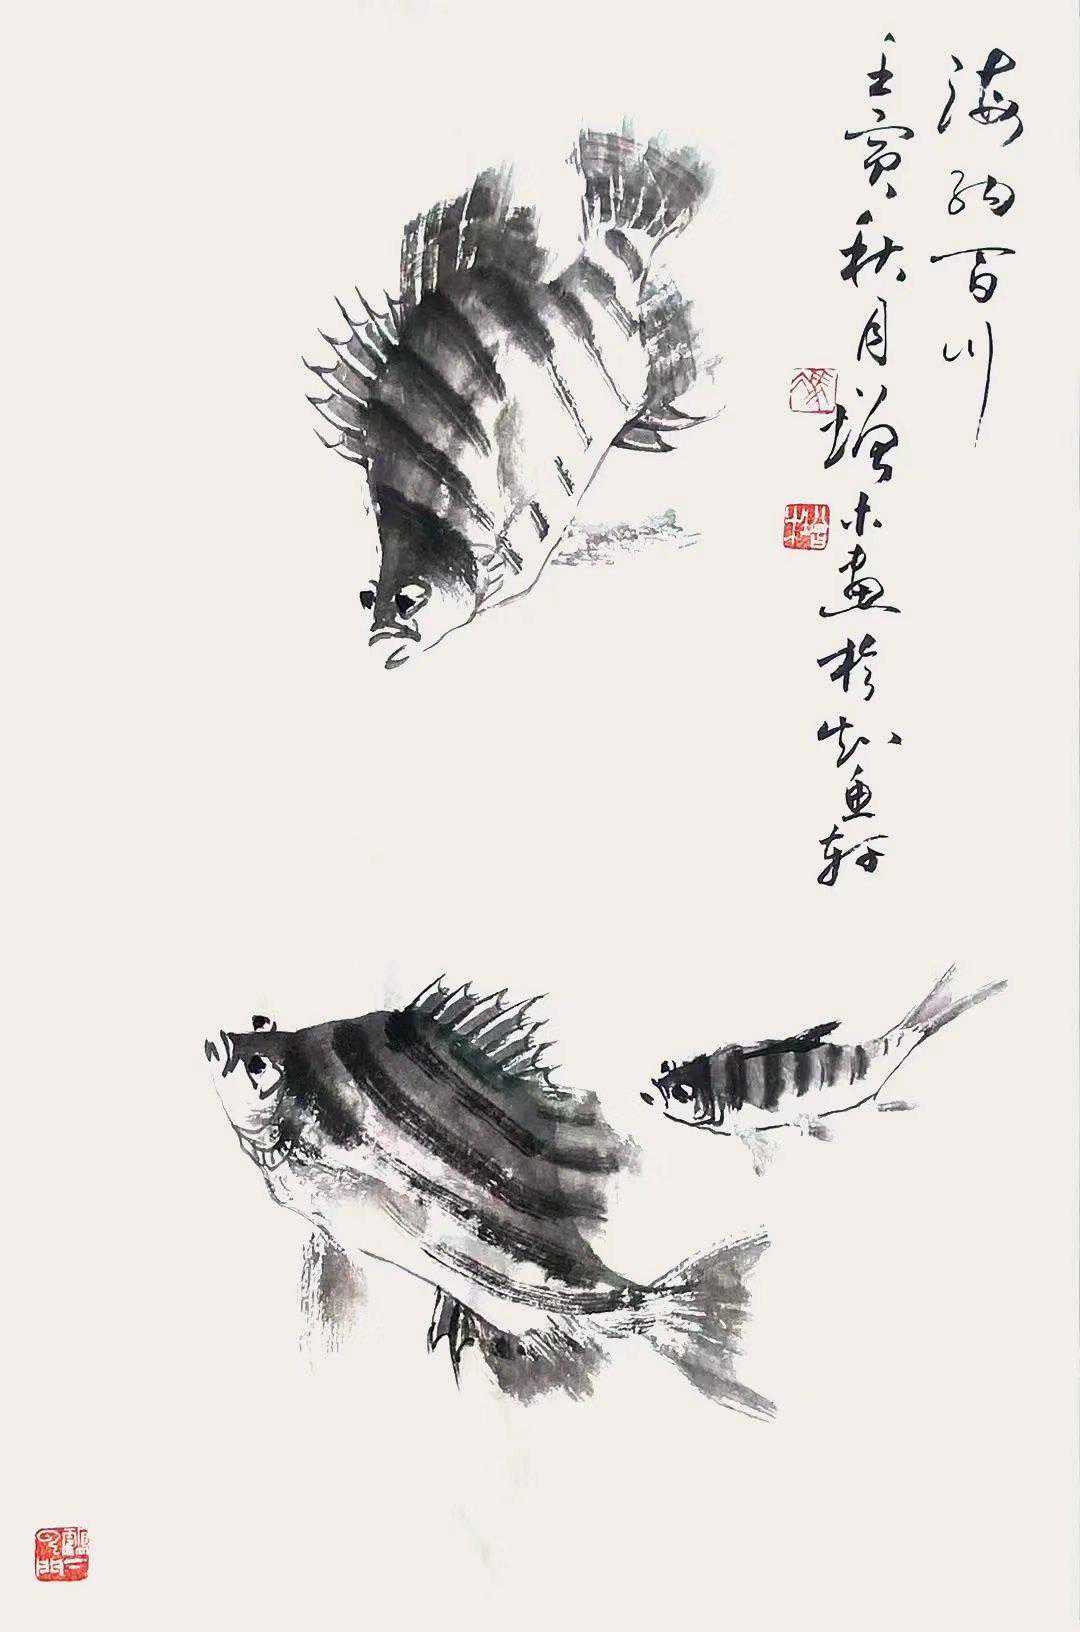 海纳百川
壬寅秋月增木画於知鱼轩